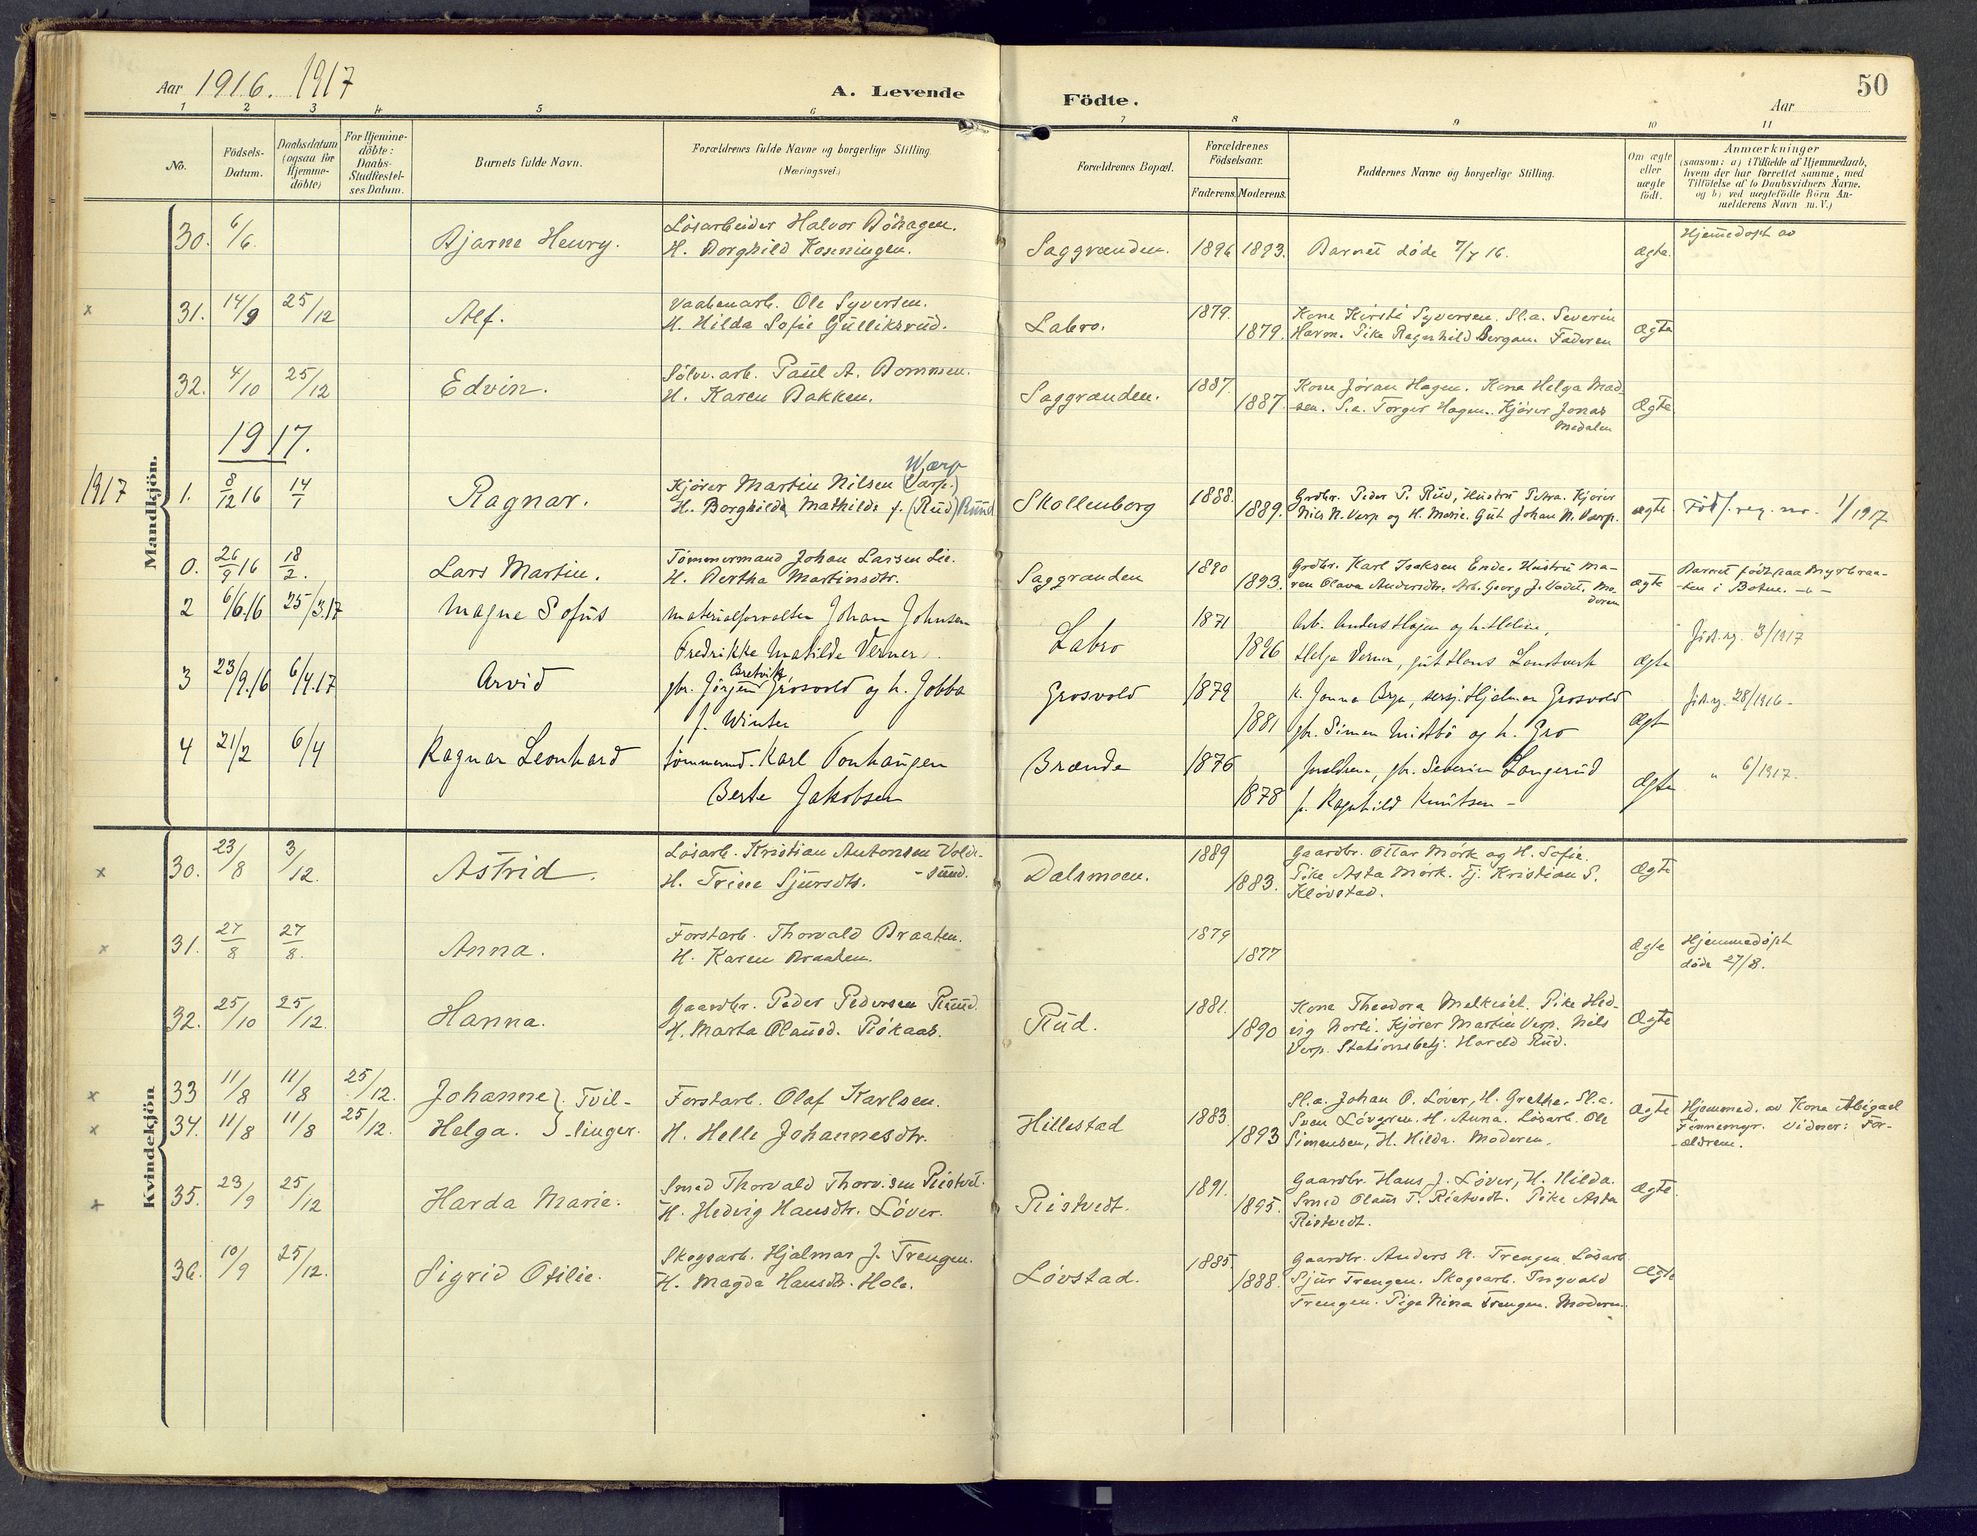 Aar 1916. 1917
A. Levende
Födte.
Aar
50
1 2 3 4 5 6 7 8 9 10 11
No.
Födsels-Datum.
Daabsdatum (ogsaa for Hjemme-döbte)
For Hjemme-döbte: Daabs-Stadfæstel-ses Datum.
Barnets fulde Navn.
Forældrenes fulde Navne og borgerlige Stilling.
(Næringsvei.)
Forældrenes Bopæl.
Forældrenes Födselsaar.
Faderens Moderens.
Faddernes Navne og borgerlige Stilling.
Om ægte eller uægte födt.
Anmærkninger
(saasom: a) i Tilfælde af Hjemmedaab, hvem der har forrettet samme, med Tilföielse af to Daabsvidners Navne, og b) ved uægtefödte Börn Anmelderens Navn m. V.)
Mandkjön.
30. 6/6. Bjarne Henry. Løsarbeider Halvor Bøhagen. Saggrænden. 1896 1893. Barnet døde 7/7 16. ægte. Hjemmedøpt av
H. Borghild Konningen.
x 31. 14/9 25/12 Alf. Vaabenarb. Ole Syversen. Labro. 1879. 1879. Kone Kirsti Syversen. Sl.a. Severin Ægte
H. Hilda Sofie Gulliksrud. Havn. Pike Ragnhild Bergan. Faderen
32. 4/10 25/12 Edvin. Sølv.arb. Paul A. Bommen. Saggrænden. 1887. 1887. Kone Jøran Hagen. Kone Helga Mad- Ægte
H. Karen Bakken. sen. S.a. Torger Hagen. Kjører Jonas
Medalen
1917.
1917 1. 8/12 16 14/1 Ragnar. Kjører Martin Nilsen (Varp.) Wærp Skollenborg 1888. 1889. Grdbr. Peder P. Rud, Hustru Petra. Kjører ægte Föds. reg. no. 1/1917
H. Borghilde Mathilde f. (Rud) Ruud Nils N. Værp og H. Marie. Gut Johan N. Værp.
0. 26/9 16 18/2. Lars Martin. Tømmermand Johan Larsen Lie. Saggrænden 1890 1893. Grdbr. Karl Isaksen Ende. Hustru Ma- ægte Barnet født paa Myrbraa-
H. Bertha Martinsdtr. ren Olava Andersdtr. Arb. Georg J. Vadet. Mo- ten i Botne.
deren
2 6/6.16 25/3.17 Magne Sofus Materialforvalter Johan Johnsen Labro 1871 1896 Arb. Anders Hagen og h. Helene, ægte Föd.rg. 3/1917
Fredrikke Matilde Verner. Helga Verner, gut Hans Landverk
3 23/9.16 6/4.17 Arvid gbr. Jørgen Bretvik Grosvold og h. Jobba Grosvold 1879 1881 k. Jonna Berg, sersj. Hjelmer Grosvold ægte Föd.rg. 28/1916 -
f. Winter gbr. Simen Midtbö og h. Gro
4 21/2 6/4 Ragnar Leonhard tömmermd. Karl Tonhaugen Brænde 1876 1878 Foreldrene, gbr. Severin Langerud ægte " 6/1917.
Berte Jakobsen p. Ragnhild Knutsen -
Kvindekjön
x 30. 23/8 3/12. Astrid. Løsarb. Kristian Antonsen Volde- Dalsmoen. 1889 1883. Gaardbr. Ottar Mørk og H. Sofie. Ægte
H. Trine Sjursdtr. - sund. Pike Asta Mørk. Tj. Kristian S.
Kløvstad.
x 31. 27/8 27/8. Anna. Forstarb. Thorvald Braaten. 1879 1877 Ægte Hjemmedøpt
H. Karen Braaten. døde 27/8.
32. 25/10 25/12. Hanna. Gaardbr. Peder Pedersen Ruud. Rud. 1881. 1890 Kone Theodora Melkisæt. Pike Hed- Ægte
H. Marta Olausd. Piökaas. vig Norli. Kjører Martin Verp. Nils
Verp. Stationsbetj. Harald Rud.
x 33 11/8 11/8 25/12. Johanne } Tvil- Forstarb. Olaf Karlsen. Hillestad 1883. 1893 Sl.a. Johan O. Løver, H. Grethe. Sl.a. Ægte Hjemmed. av Kone Abigael
x 34. 11/8 11/8 25/12. Helga. } -linger. H. Helle Johannesdtr. Sven Løvgren. H. Anna. Løsarb. Ole Finnemyr. Vidner: For-
Simensen, H. Hilda. Moderen. ældrene.
x 35. 23/9 25/12 Harda Marie. Smed Thorvald Thorv.sen Ristvet. Ristvedt. 1891. 1895. Gaardbr. Hans J. Løver, H. Hilda. Ægte.
H. Hedvig Hansdtr. Løver. Smed Olaus T. Ristvedt. Pike Asta
Ristvedt.
36. 10/9 25/12. Sigrid Otilie. Skogsarb. Hjalmar J. Trengen. Løvstad. 1885. 1888. Gaardbr. Anders N. Trengen. Løsarb. Ægte
H. Magda Hansdtr. Hole. Sjur Trengen. Skogsarb. Ingvald
Trengen. Pige Nina Trengen. Moderen.